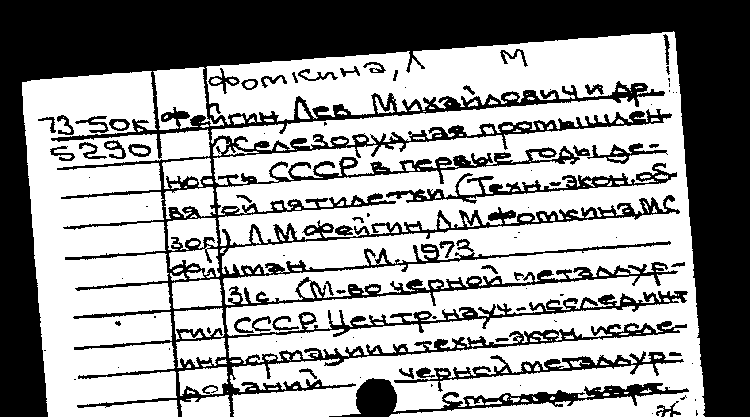 Фомкина, Л М
73-50к Фейгин, Лев Михайлович и др.
5290 Железорудная промышлен-
ность СССР в первые годы де-
вятой пятилетки. (Техн.-экон. об-
зор). Л.М. Фейгин, Л.М. Фомкина, М.С.
Фишман. М., 1973.
31с. (М-во черной металлур-
гии СССР. Центр. науч.-исслед. ин-т
информации и техн.-экон. иссле-
дований черной металлур-
См. след. карт.